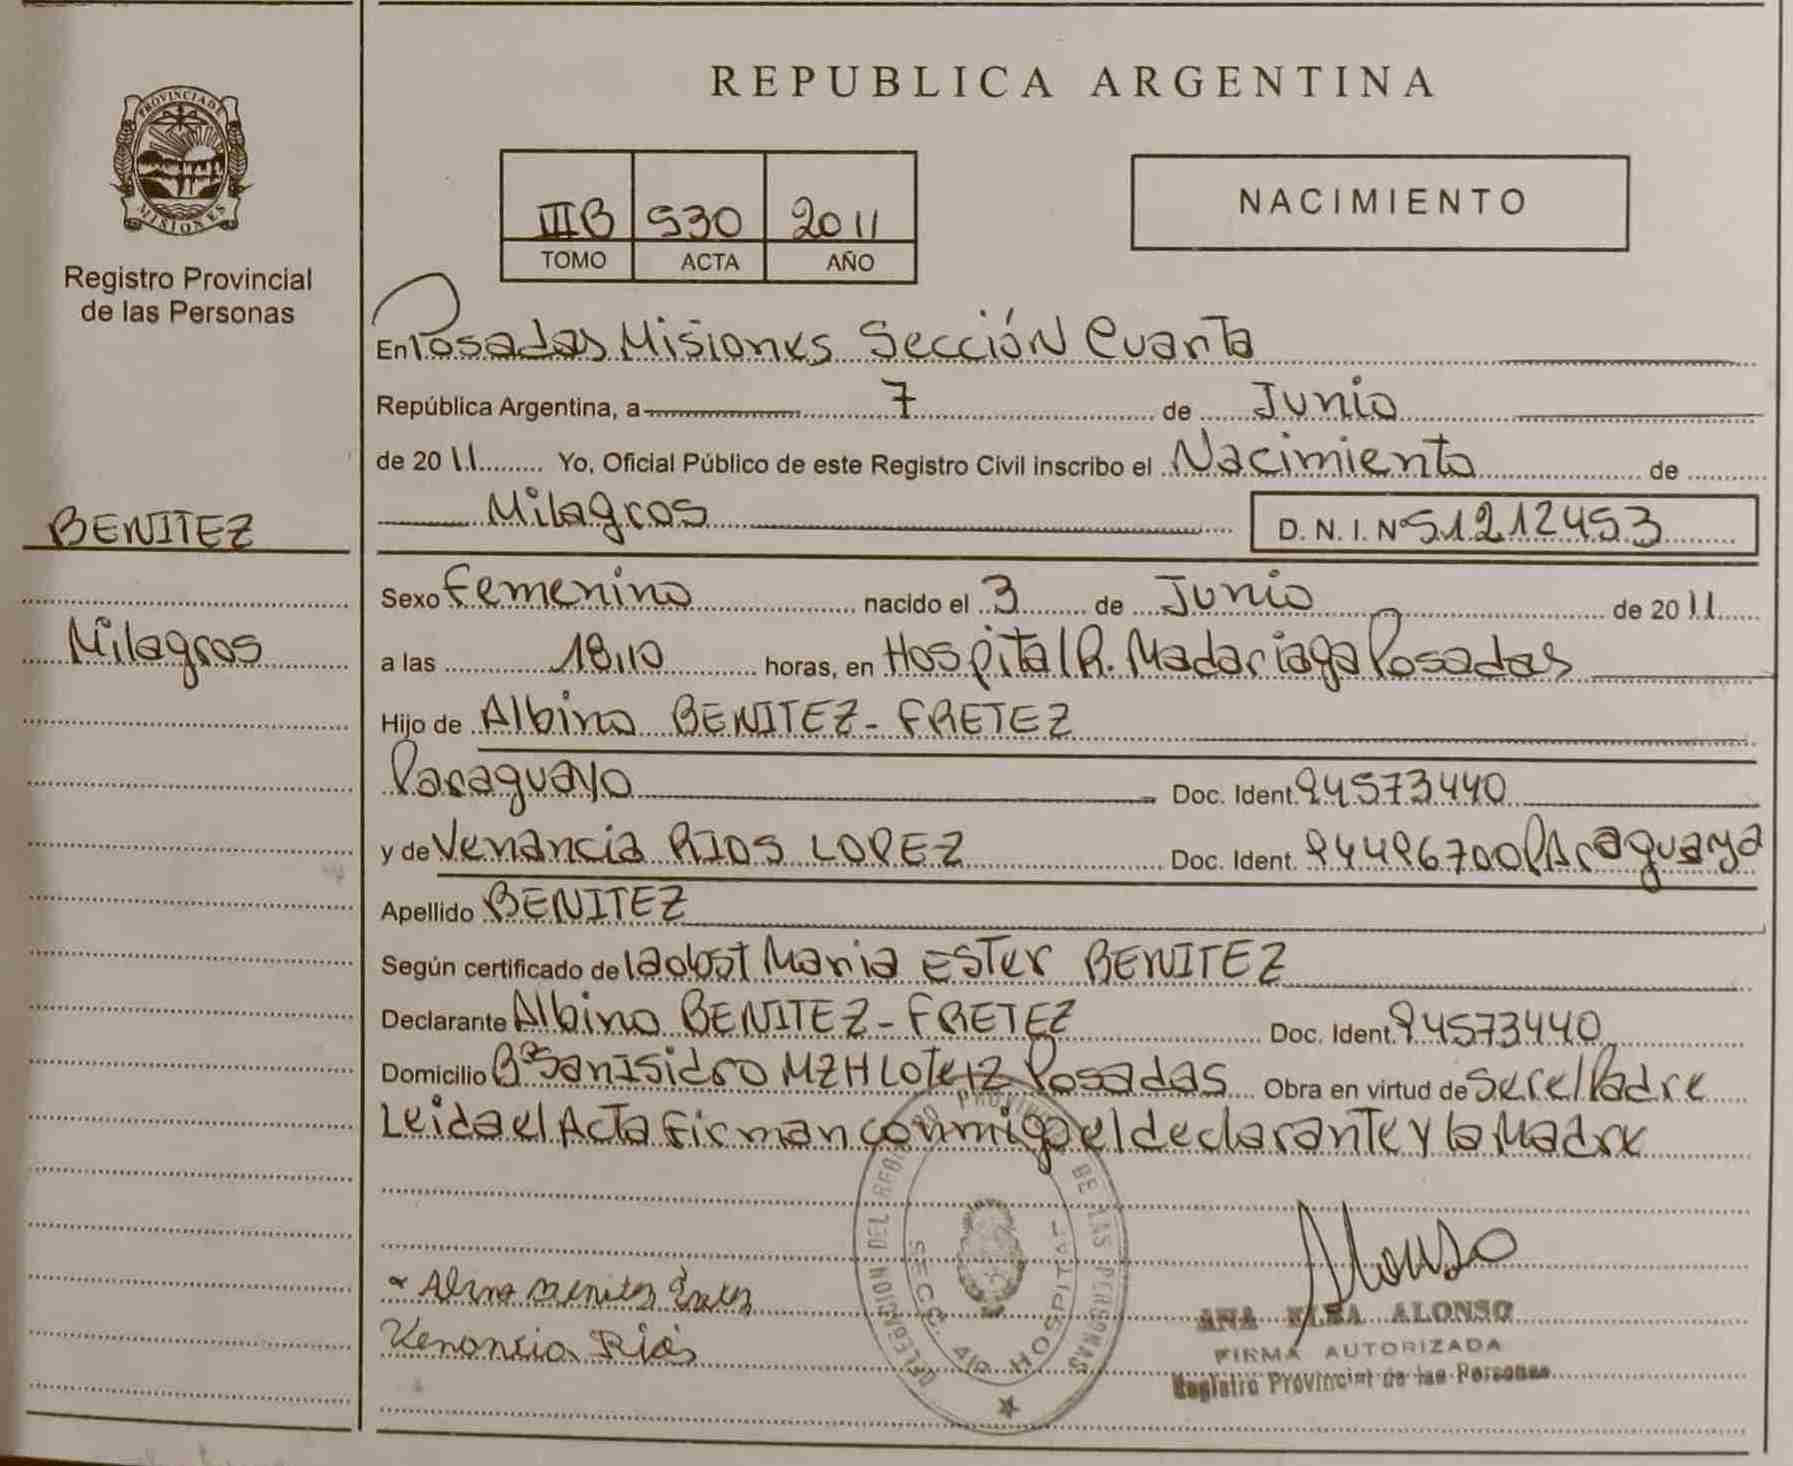 REPUBLICA ARGENTINA
PROVINCIA DE MISIONES
Registro Provincial
de las Personas
IIIB 530 2011
TOMO ACTA AÑO
NACIMIENTO
En Posadas Misiones Sección Cuarta
República Argentina, a 7 de Junio
de 2011 Yo, Oficial Público de este Registro Civil inscribo el Nacimiento de
Milagros D. N. I. Nº 51212453
BENITEZ
Milagros
Sexo Femenino nacido el 3 de Junio de 2011
a las 18,10 horas, en Hospital R. Madariaga Posadas
Hijo de Albino BENITEZ - FRETEZ
Paraguayo Doc. Ident. 94573440
y de Venancia RIOS LOPEZ Doc. Ident. 94496700 Paraguaya
Apellido BENITEZ
Según certificado de la obst Maria Ester BENITEZ
Declarante Albino BENITEZ - FRETEZ Doc. Ident. 94573440
Domicilio Bº San Isidro MZ H Lote 12 Posadas Obra en virtud de ser el Padre
Leida el Acta firman conmigo el declarante y la Madre
DELEGACION DEL REGISTRO PROVINCIAL DE LAS PERSONAS
SECC. HOSPITAL
Venancia Rios
Alonso
ANA ELBA ALONSO
FIRMA AUTORIZADA
Registro Provincial de las Personas